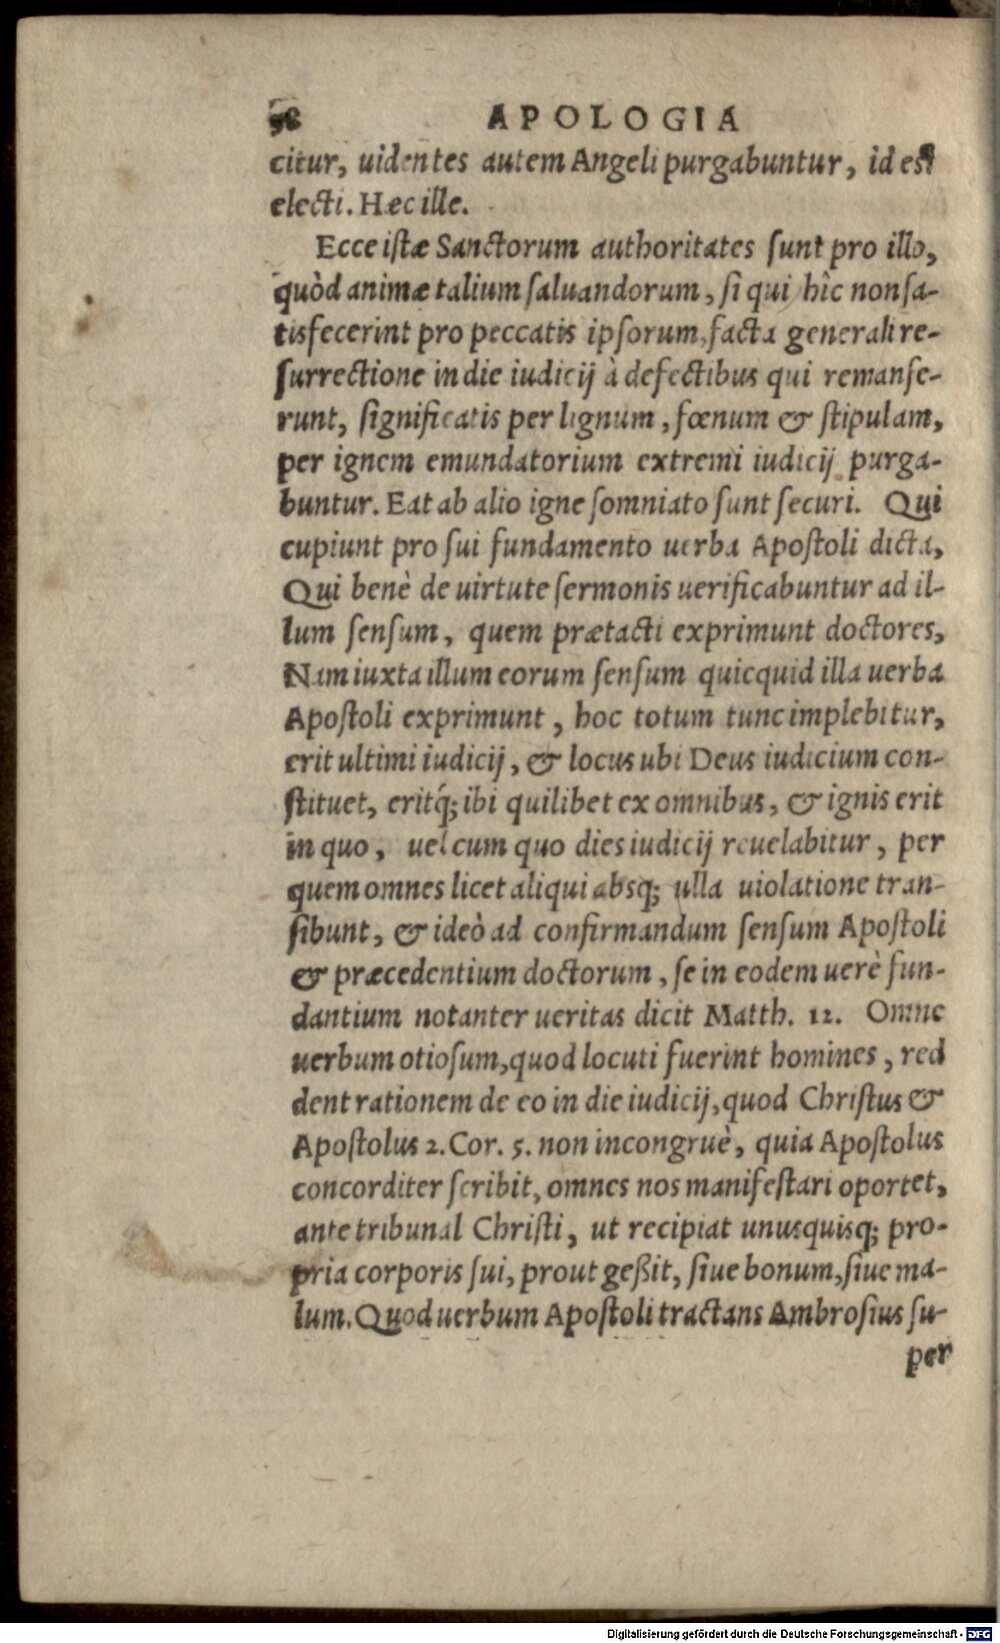 98 APOLOGIA
citur, uidentes autem Angeli purgabuntur, id est
electi. Hæc ille.
Ecce istæ Sanctorum authoritates sunt pro illo,
quòd animæ talium saluandorum, si qui hîc non sa-
tisfecerint pro peccatis ipsorum, facta generali re-
surrectione in die iudicij à defectibus qui remanse-
runt, significatis per lignum, fœnum & stipulam,
per ignem emundatorium extremi iudicij purga-
buntur. Eat ab alio igne somniato sunt securi. Qui
cupiunt pro sui fundamento uerba Apostoli dicta,
Qui benè de uirtute sermonis uerificabuntur ad il-
lum sensum, quem prætacti exprimunt doctores,
Nam iuxta illum eorum sensum quicquid illa uerba
Apostoli exprimunt, hoc totum tunc implebitur,
erit ultimi iudicij, & locus ubi Deus iudicium con-
stituet, eritq́; ibi quilibet ex omnibus, & ignis erit
in quo, uel cum quo dies iudicij reuelabitur, per
quem omnes licet aliqui absq; ulla uiolatione tran-
sibunt, & ideò ad confirmandum sensum Apostoli
& præcedentium doctorum, se in eodem uerè fun-
dantium notanter ueritas dicit Matth. 12. Omne
uerbum otiosum, quod locuti fuerint homines, red
dent rationem de eo in die iudicij, quod Christus &
Apostolus 2. Cor. 5. non incongruè, quia Apostolus
concorditer scribit, omnes nos manifestari oportet,
ante tribunal Christi, ut recipiat unusquisq; pro-
pria corporis sui, prout geßit, siue bonum, siue ma-
lum. Quod uerbum Apostoli tractans Ambrosius su-
per
Digitalisierung gefördert durch die Deutsche Forschungsgemeinschaft - DFG